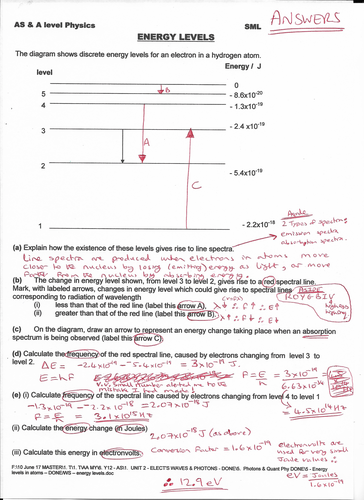 AS & A level Physics
SML
ANSWERS
ENERGY LEVELS
The diagram shows discrete energy levels for an electron in a hydrogen atom.
level
Energy / J
0
5
- 8.6x10⁻²⁰
4
- 1.3x10⁻¹⁹
3
- 2.4 x10⁻¹⁹
2
- 5.4x10⁻¹⁹
1
- 2.2x10⁻¹⁸
B
A
C
Aside
2 Types of spectra
emission spectra
absorption spectra.
(a) Explain how the existence of these levels gives rise to line spectra.
Line spectra are produced when electrons in atoms move
closer to the nucleus by losing (emitting) energy as light, or move
from the nucleus by absorbing energy.
(b) The change in energy level shown, from level 3 to level 2, gives rise to a red spectral line.
Mark, with labelled arrows, changes in energy level which could give rise to spectral lines
corresponding to radiation of wavelength
ASIDE
ROYGBIV
(i) less than that of the red line (label this arrow A). λ↓ ∴ F↑ ∴ E↑
(ii) greater than that of the red line (label this arrow B). λ↑ ∴ F↓ ∴ E↓
(c) On the diagram, draw an arrow to represent an energy change taking place when an absorption
spectrum is being observed (label this arrow C).
(d) Calculate the frequency of the red spectral line, caused by electrons changing from level 3 to
level 2.
ΔE = -2.4x10⁻¹⁹ - -5.4x10⁻¹⁹ = 3x10⁻¹⁹ J.
E=hF
V.V. small number alerted me to the
mistake I had made
F=E/h = 3x10⁻¹⁹
6.63x10⁻³⁴
= 4.5x10¹⁴ Hz
(e) (i) Calculate the frequency of the spectral line, caused by electrons changing from level 4 to level 1
-1.3x10⁻¹⁹ - -2.2x10⁻¹⁸ = 2.07x10⁻¹⁸ J
F=E/h = 3.1x10¹⁵ Hz
(ii) Calculate the energy change (in Joules)
2.07x10⁻¹⁸ J (as above)
(iii) Calculate this energy in electronvolts.
Conversion factor = 1.6x10⁻¹⁹
electronvolts are
used for very small
Joule values ∴
eV = Joules
1.6x10⁻¹⁹
∴ 12.9 eV